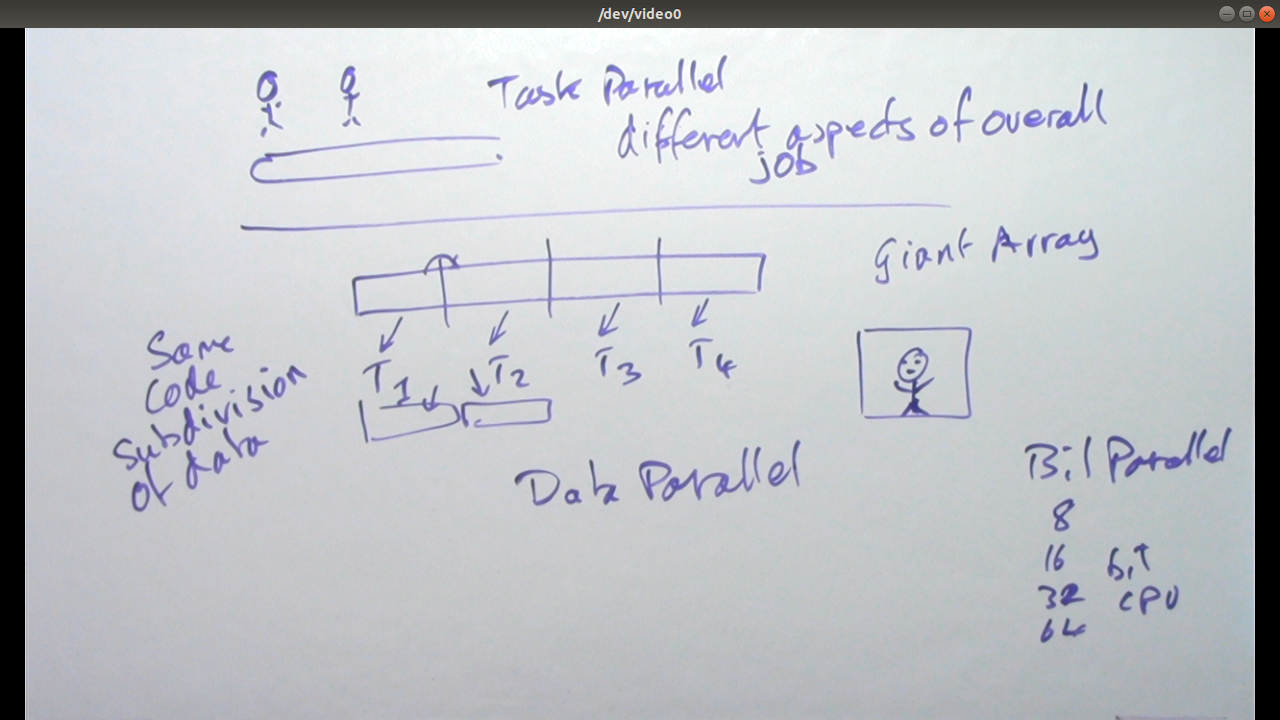 /dev/video0
Task Parallel
different aspects of overall
job
Giant Array
T1 T2 T3 T4
Same
Code
Subdivision
of data
Data Parallel
Bit Parallel
8
16 bit
32 CPU
64